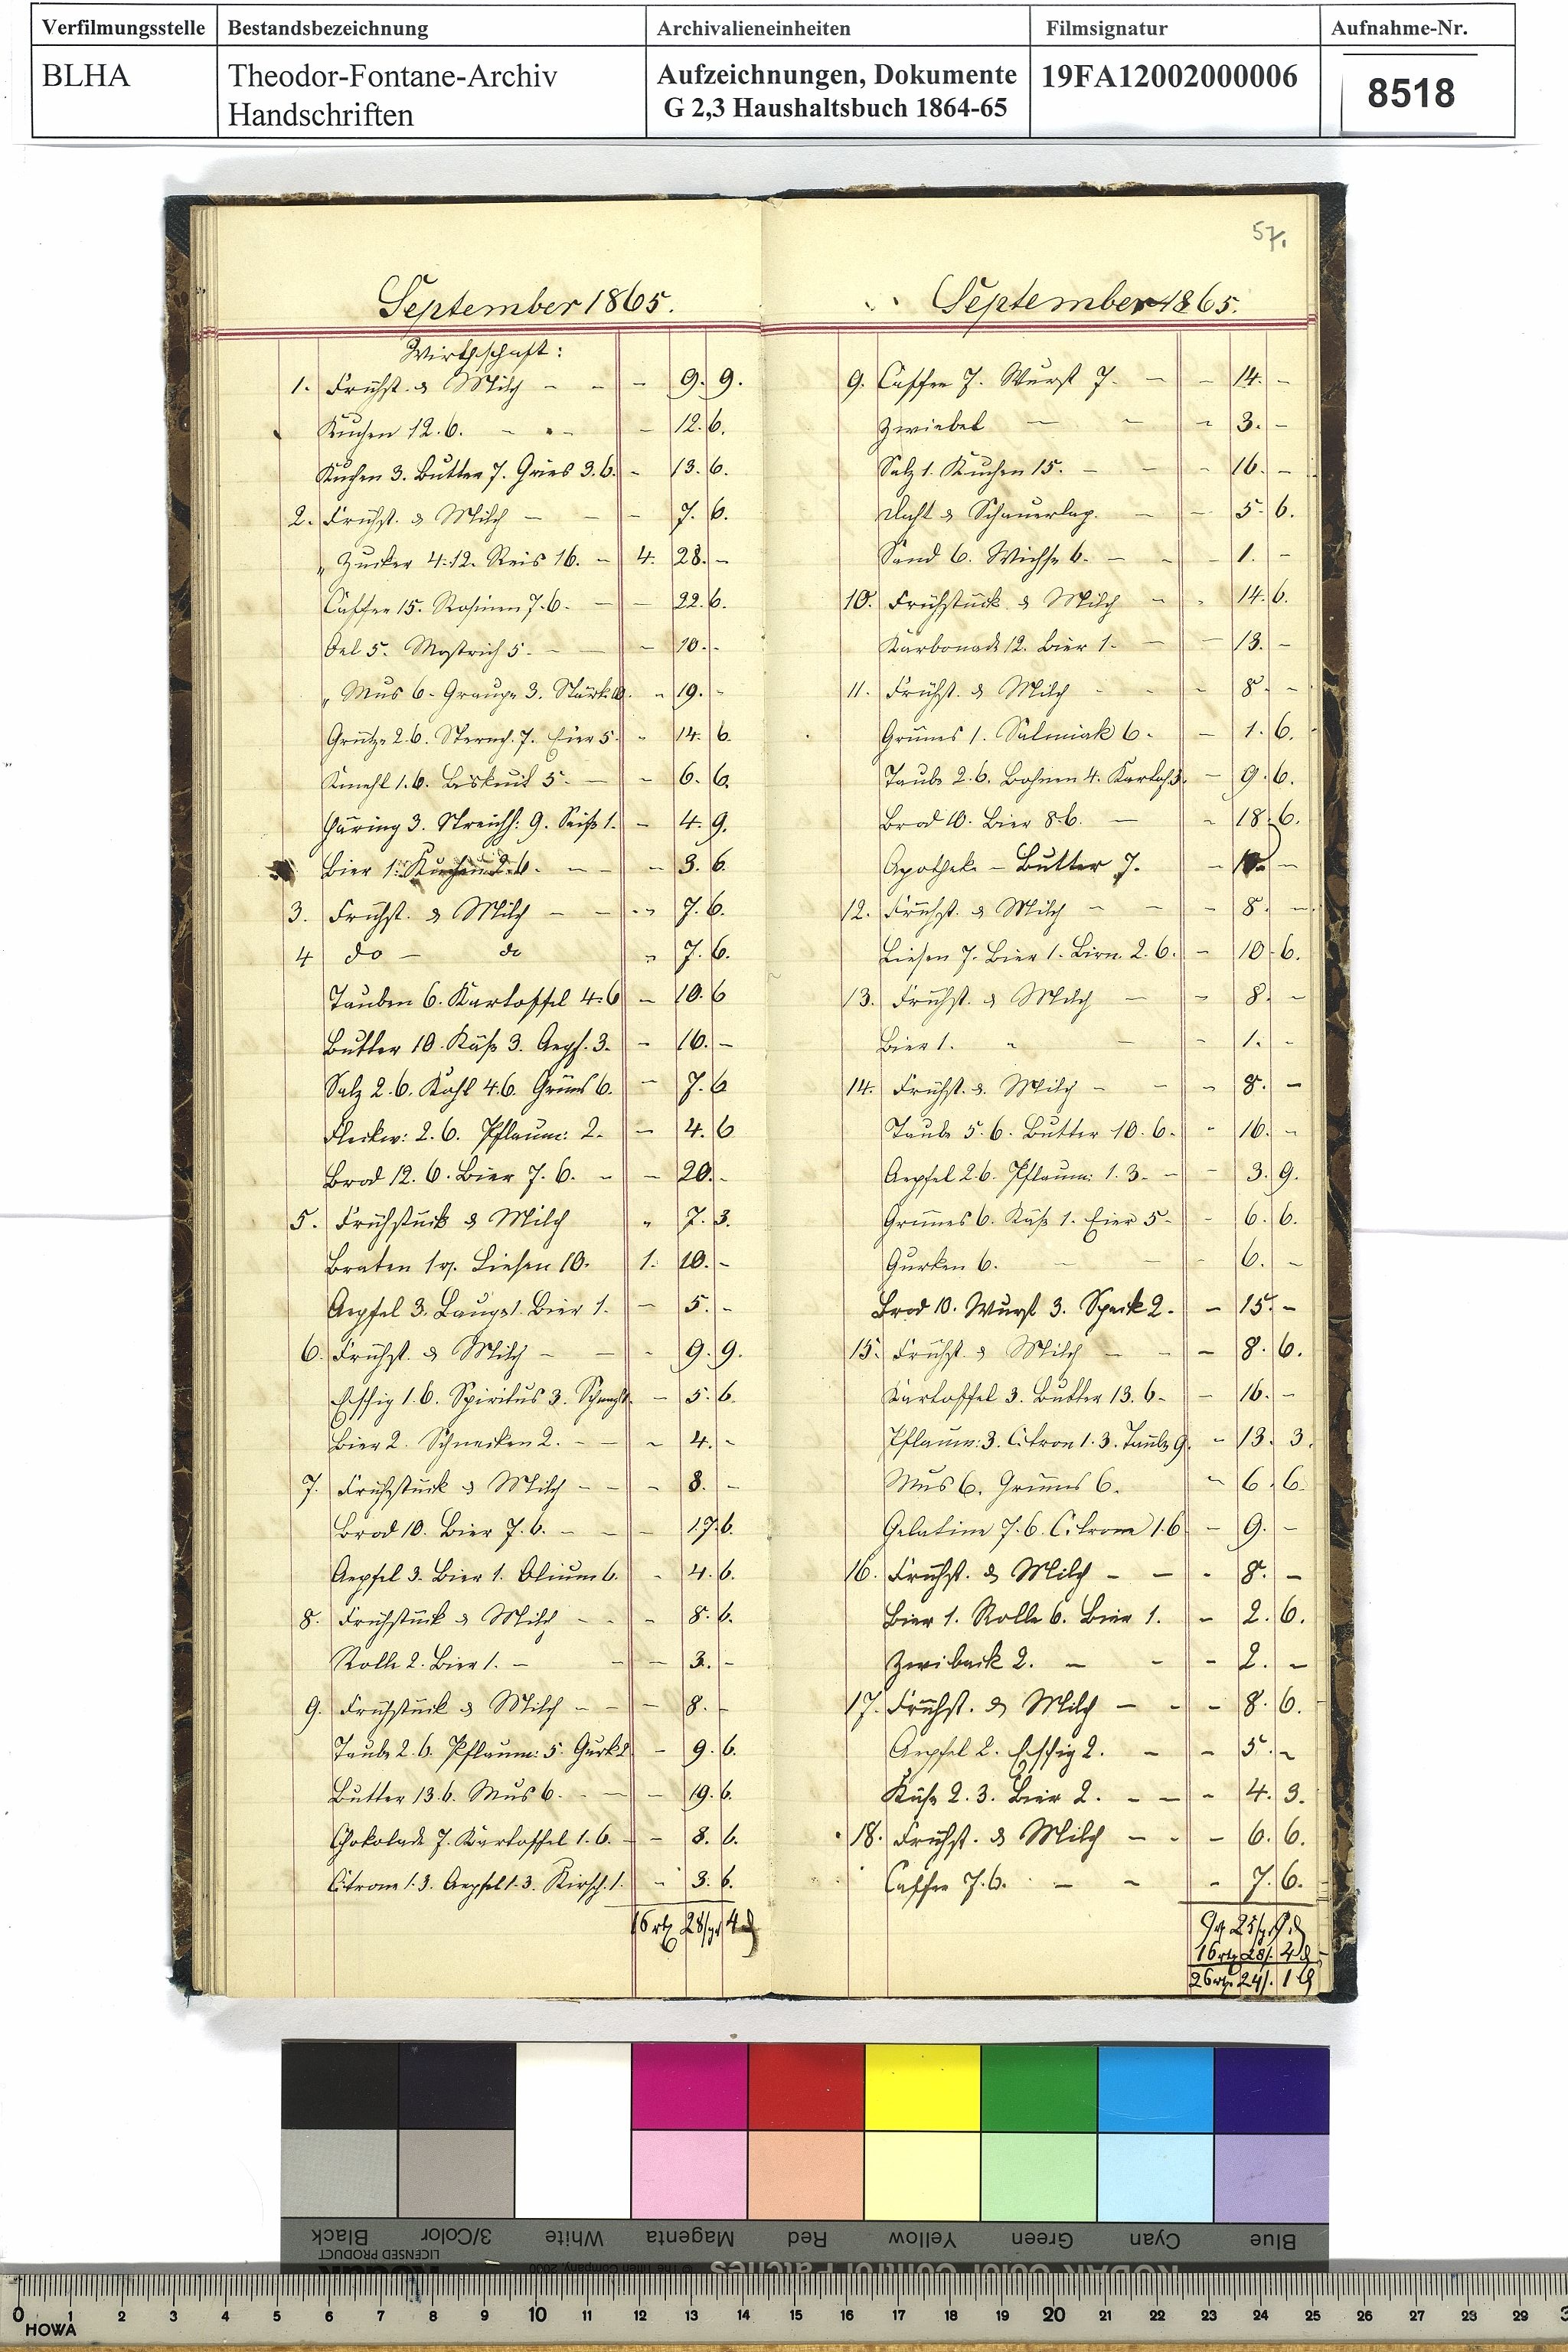 Verfilmungsstelle Bestandsbezeichnung Archivalieneinheiten Filmsignatur Aufnahme-Nr.
BLHA Theodor-Fontane-Archiv Handschriften Aufzeichnungen, Dokumente G 2,3 Haushaltsbuch 1864-65 19FA12002000006 8518
57.
September 1865.
Wirthschaft:
1. Frühst. & Milch - - - 9. 9.
Kuchen 12.6. - - - 12. 6.
Kuchen 3. Butter 7. Gries 3.6. - 13. 6.
2. Frühst. & Milch - - - 7. 6.
" Zucker 4.12. Reis 16. - 4. 28. -
Caffee 15. Rosinen 7.6. - - 22. 6.
Oel 5. Mostrich 5. - - - 10. -
" Mus 6. Graupe 3. Stärke 10. - 19. -
Grütze 2.6. 7. Eier 5. - 14. 6.
Kmehl 1.6. Biskuit 5. - - 6. 6.
Häring 3. Streichh: 9. Seife 1. - 4. 9.
Bier 1. Kuchen 2.6. - - - 3. 6.
3. Frühst. & Milch - - - 7. 6.
4 do - do " 7. 6.
Tauben 6. Kartoffel 4.6 - 10. 6
Butter 10. Käse 3. Aepf. 3. - 16. -
Salz 2.6. Kohl 4.6. Grüns 6. - 7. 6
Fleckw: 2.6. Pflaum: 2. - 4. 6
Brod 12.6. Bier 7.6. - - 20. -
5. Frühstück & Milch " 7. 3.
Braten 1 Liesen 10. 1. 10. -
Aepfel 3. Lauge 1. Bier 1. - 5. -
6. Frühst. & Milch - - - 9. 9.
Essig 1.6. Spiritus 3. - 5. 6.
Bier 2. Schnecken 2. - - - 4. -
7. Frühstück & Milch - - - 8. -
Brod 10. Bier 7.6. - - - 17. 6.
Aepfel 3. Bier 1. 6. - 4. 6.
8. Frühstück & Milch - - - 8. 6.
Rolle 2. Bier 1. - - - 3. -
9. Frühstück & Milch - - - 8. -
Taube 2.6. Pflaum: 5. Gurk 2 - 9. 6.
Butter 13.6. Mus 6. - - - 19. 6.
Chokolade 7. Kartoffel 1.6. - - 8. 6.
Citrone 1.3. Aepfel 1.3. Kirsch. 1. - 3. 6.
16 rtl 28 sgr 4 d
September 1865.
9. Caffee 7. Wurst 7. - - 14. -
Zwiebel - - - 3. -
Salz 1. Kuchen 15. - - - 16. -
Docht & Scheuerlap. - - 5. 6.
Sand 6. Wichse 6. - - - 1. -
10. Frühstück & Milch - - 14. 6.
Karbonade 12. Bier 1. - - 13. -
11. Frühst. & Milch - - - 8. -
Grünes 1. Salmiak 6. - - 1. 6.
Taube 2.6. Bohnen 4. Kartof 3. - 9. 6.
Brod 10. Bier 8.6. - - 18. 6.
Apotheke - Butter 7. - -
12. Frühst. & Milch - - - 8. -
Liesen 7. Bier 1. Birn. 2.6. - 10. 6.
13. Frühst. & Milch - - 8. -
Bier 1. - - - 1. -
14. Frühst. & Milch - - - 8. -
Taube 5.6. Butter 10.6. - 16. -
Aepfel 2.6. Pflaum: 1.3. - - 3. 9.
Grünes 6. Käse 1. Eier 5. - 6. 6.
Gurken 6. - - - 6. -
Brod 10. Wurst 3. Speck 2. - 15. -
15. Frühst. & Milch - - - 8. 6.
Kartoffel 3. Butter 13.6. - 16. -
Pflaum: 3. Citron 1.3. Taube 9. - 13. 3.
Mus 6. Grünes 6. - 6. 6.
Gelatine 7.6. Citrone 1.6 - 9. -
16. Frühst. & Milch - - - 8. -
Bier 1. Rolle 6. Bier 1. - 2. 6.
Zwiback 2. - - - 2. -
17. Frühst. & Milch - - - 8. 6.
Aepfel 2. Essig 2. - - 5. -
Käse 2.3. Bier 2. - - - 4. 3.
18. Frühst. & Milch - - - 6. 6.
Caffee 7.6. - - - 7. 6.
9 rt 25 sgr 9 d
16 rtl 28 4 d
26 rtl 24 1 d
Black 3/Color White Magenta Red Yellow Green Cyan Blue
LICENSED PRODUCT
Kodak KODAK Color Control Patches
0 1 2 3 4 5 6 7 8 9 10 11 12 13 14 15 16 17 18 19 20 21 22 23 24 25 26 27 28 29 3
HOWA